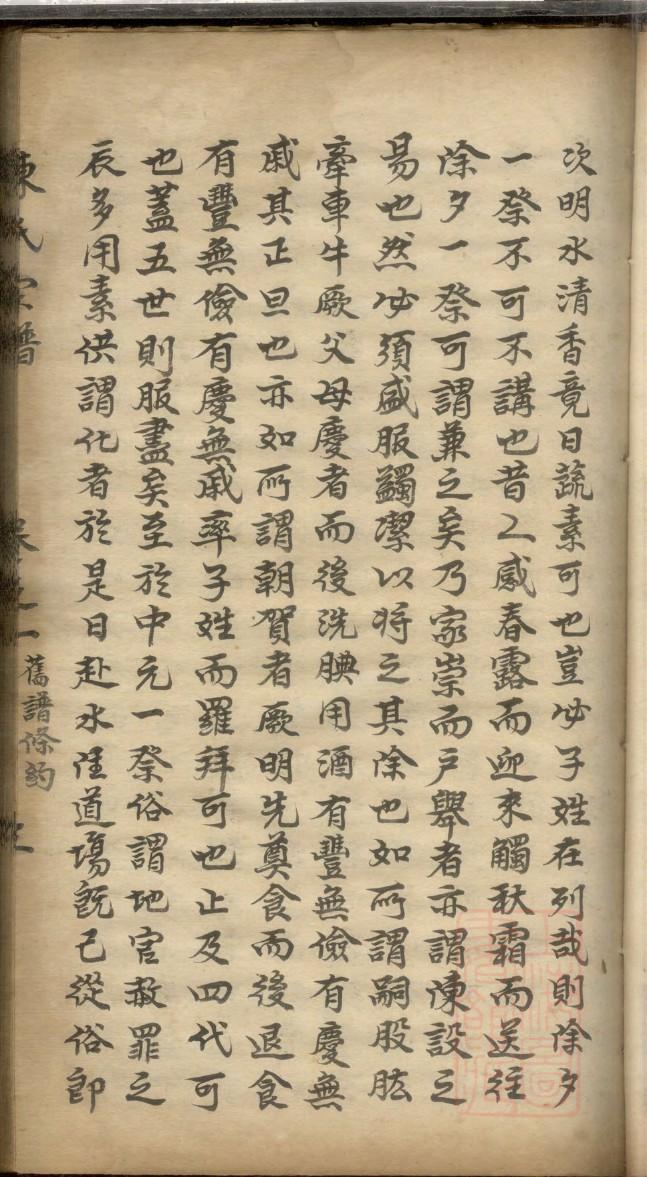 次明水清香竟日蔬素可也豈必子姓在列哉則除夕
一祭不可不講也昔之感春露而迎來觸秋霜而送往
除夕一祭可謂兼之矣乃家崇而戶舉者亦謂陳設之
易也然必須盛服蠲潔以將之其除也如所謂嗣股肱
牽車牛厥父母慶者而後洗腆用酒有豐無儉有慶無
戚其正旦也亦如所謂朝賀者厥明先奠食而後退食
有豐無儉有慶無戚率子姓而羅拜可也止及四代可
也蓋五世則服盡矣至於中元一祭俗謂地官赦罪之
辰多用素供謂化者於是日赴水陸道場既已從俗即
陳氏宗譜
卷之一 舊譜條約